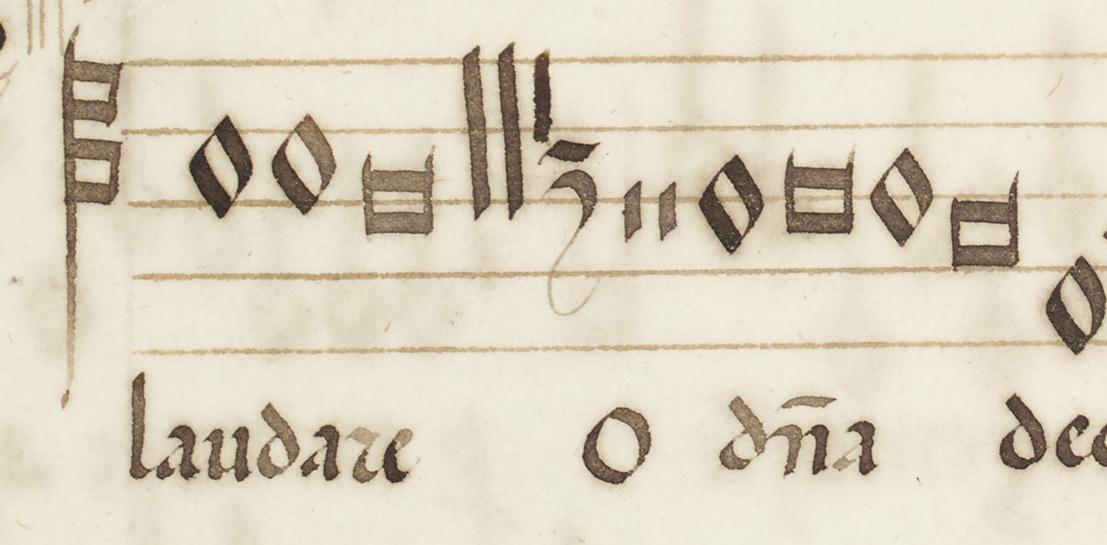 laudare O dn̄a dec